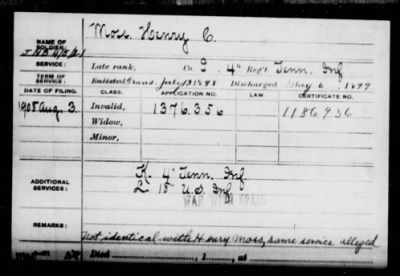 NAME OF SOLDIER: Moss, Henry C.
SERVICE: Late rank, Co. I, 4" Reg't Tenn. Inf
TERM OF SERVICE: Enlisted July 1898 Discharged May 6, 1899
DATE OF FILING. CLASS. APPLICATION NO. LAW. CERTIFICATE NO.
1908 Aug. 3 Invalid, 1376.356 1186936
Widow,
Minor,
ADDITIONAL SERVICES: K. 4" Tenn. Inf
L 15" U.S. Inf
WAR WITH SPAIN
REMARKS: Not identical with Henry Moss, same service alleged
Died , 1 , at